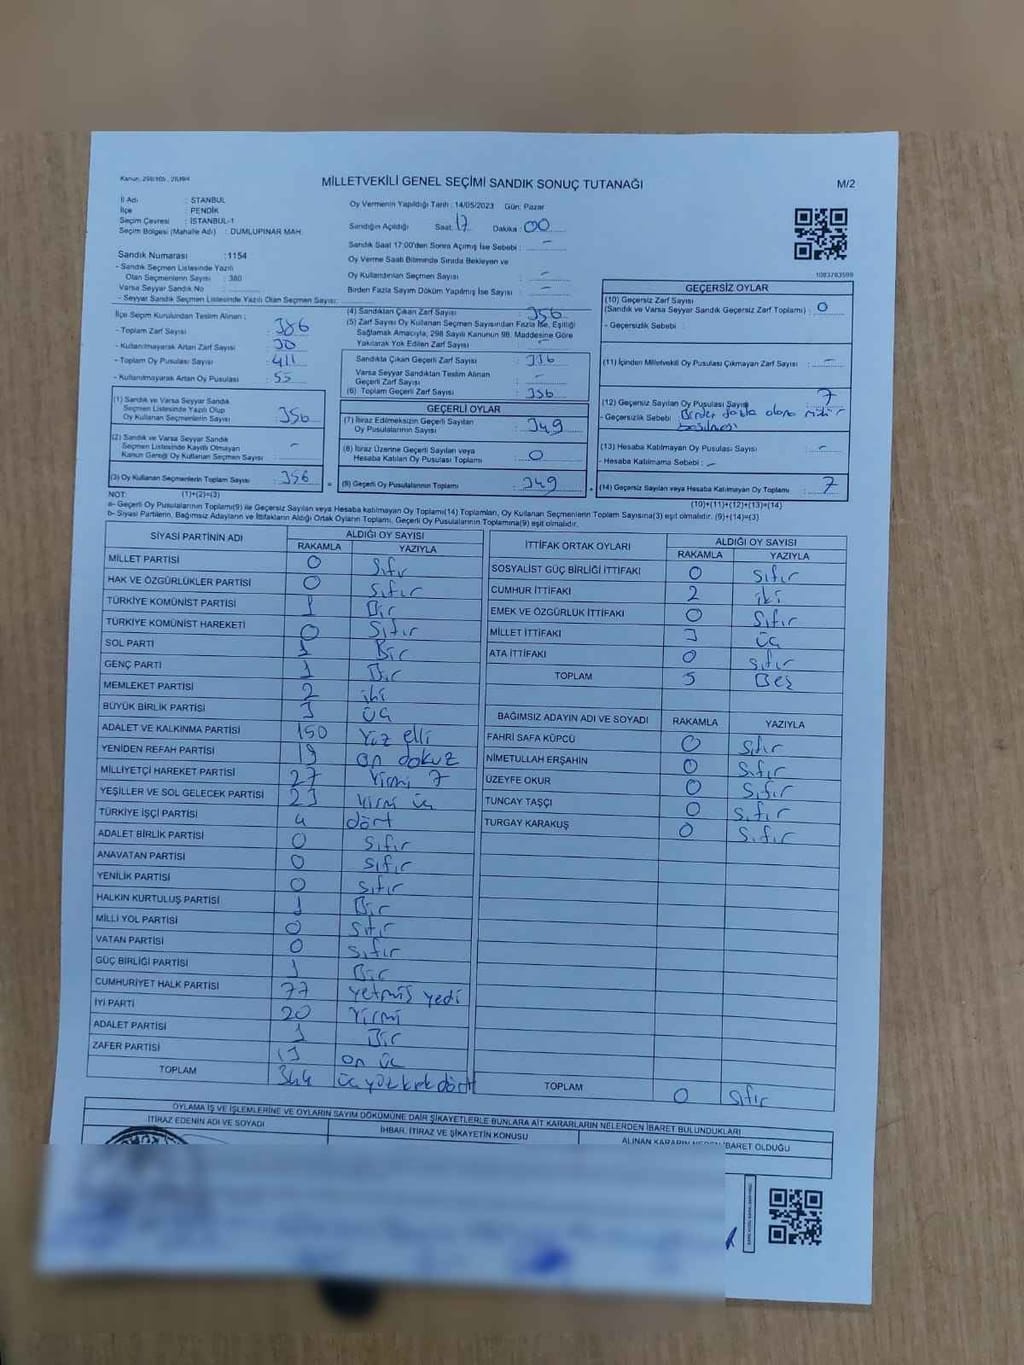 Kanun: 298/105, 2839/4
MİLLETVEKİLİ GENEL SEÇİMİ SANDIK SONUÇ TUTANAĞI
M/2
İl Adı : İSTANBUL
İlçe : PENDİK
Seçim Çevresi : İSTANBUL-1
Seçim Bölgesi (Mahalle Adı) : DUMLUPINAR MAH.
Oy Vermenin Yapıldığı Tarih : 14/05/2023 Gün: Pazar
Sandığın Açıldığı Saat: 17 Dakika : 00
Sandık Saat 17:00'den Sonra Açılmış İse Sebebi : -
Oy Verme Saati Bitiminde Sırada Bekleyen ve
Oy Kullandırılan Seçmen Sayısı : -
Birden Fazla Sayım Döküm Yapılmış İse Sayısı : -
Sandık Numarası : 1154
- Sandık Seçmen Listesinde Yazılı
Olan Seçmenlerin Sayısı : 380
Varsa Seyyar Sandık No :
- Seyyar Sandık Seçmen Listesinde Yazılı Olan Seçmen Sayısı:
İlçe Seçim Kurulundan Teslim Alınan ;
- Toplam Zarf Sayısı : 386
- Kullanılmayarak Artan Zarf Sayısı : 30
- Toplam Oy Pusulası Sayısı : 411
- Kullanılmayarak Artan Oy Pusulası : 55
(1) Sandık ve Varsa Seyyar Sandık
Seçmen Listesinde Yazılı Olup
Oy Kullanan Seçmenlerin Sayısı : 356
(2) Sandık ve Varsa Seyyar Sandık
Seçmen Listesinde Kayıtlı Olmayan
Kanun Gereği Oy Kullanan Seçmen Sayısı : -
(3) Oy Kullanan Seçmenlerin Toplam Sayısı : 356
(4) Sandıktan Çıkan Zarf Sayısı : 356
(5) Zarf Sayısı Oy Kullanan Seçmen Sayısından Fazla İse, Eşitliği
Sağlamak Amacıyla, 298 Sayılı Kanunun 98. Maddesine Göre
Yakılarak Yok Edilen Zarf Sayısı : -
Sandıkta Çıkan Geçerli Zarf Sayısı : 356
Varsa Seyyar Sandıktan Teslim Alınan
Geçerli Zarf Sayısı : -
(6) Toplam Geçerli Zarf Sayısı : 356
GEÇERLİ OYLAR
(7) İtiraz Edilmeksizin Geçerli Sayılan
Oy Pusulalarının Sayısı : 349
(8) İtiraz Üzerine Geçerli Sayılan veya
Hesaba Katılan Oy Pusulası Toplamı : 0
(9) Geçerli Oy Pusulalarının Toplamı : 349
1083783599
GEÇERSİZ OYLAR
(10) Geçersiz Zarf Sayısı
(Sandık ve Varsa Seyyar Sandık Geçersiz Zarf Toplamı) : 0
- Geçersizlik Sebebi :
(11) İçinden Milletvekili Oy Pusulası Çıkmayan Zarf Sayısı : -
(12) Geçersiz Sayılan Oy Pusulası Sayısı : 7
- Geçersizlik Sebebi : Birden fazla alana mühür
basılması
(13) Hesaba Katılmayan Oy Pusulası Sayısı : -
- Hesaba Katılmama Sebebi : -
(14) Geçersiz Sayılan veya Hesaba Katılmayan Oy Toplamı : 7
NOT: (1)+(2)=(3)
(10)+(11)+(12)+(13)=(14)
a- Geçerli Oy Pusulaları Toplamı(9) ile Geçersiz Sayılan veya Hesaba Katılmayan Oy Toplamı(14) Toplamları, Oy Kullanan Seçmenlerin Toplam Sayısına(3) eşit olmalıdır. (9)+(14)=(3)
b- Siyasi Partilerin, Bağımsız Adayların ve İttifakların Aldığı Ortak Oyların Toplamı, Geçerli Oy Pusulalarının Toplamına(9) eşit olmalıdır.
SİYASİ PARTİNİN ADI ALDIĞI OY SAYISI
RAKAMLA YAZIYLA
MİLLET PARTİSİ 0 Sıfır
HAK VE ÖZGÜRLÜKLER PARTİSİ 0 Sıfır
TÜRKİYE KOMÜNİST PARTİSİ 1 Bir
TÜRKİYE KOMÜNİST HAREKETİ 0 Sıfır
SOL PARTİ 1 Bir
GENÇ PARTİ 1 Bir
MEMLEKET PARTİSİ 2 iki
BÜYÜK BİRLİK PARTİSİ 3 üç
ADALET VE KALKINMA PARTİSİ 150 Yüz elli
YENİDEN REFAH PARTİSİ 19 on dokuz
MİLLİYETÇİ HAREKET PARTİSİ 27 Yirmi 7
YEŞİLLER VE SOL GELECEK PARTİSİ 23 Yirmi üç
TÜRKİYE İŞÇİ PARTİSİ 4 dört
ADALET BİRLİK PARTİSİ 0 Sıfır
ANAVATAN PARTİSİ 0 Sıfır
YENİLİK PARTİSİ 0 Sıfır
HALKIN KURTULUŞ PARTİSİ 1 Bir
MİLLİ YOL PARTİSİ 0 Sıfır
VATAN PARTİSİ 0 Sıfır
GÜÇ BİRLİĞİ PARTİSİ 1 Bir
CUMHURİYET HALK PARTİSİ 77 yetmiş yedi
İYİ PARTİ 20 Yirmi
ADALET PARTİSİ 1 Bir
ZAFER PARTİSİ 13 on üç
TOPLAM 344 üç yüz kırk dört
İTTİFAK ORTAK OYLARI ALDIĞI OY SAYISI
RAKAMLA YAZIYLA
SOSYALİST GÜÇ BİRLİĞİ İTTİFAKI 0 Sıfır
CUMHUR İTTİFAKI 2 iki
EMEK VE ÖZGÜRLÜK İTTİFAKI 0 Sıfır
MİLLET İTTİFAKI 3 üç
ATA İTTİFAKI 0 sıfır
TOPLAM 5 Beş
BAĞIMSIZ ADAYIN ADI VE SOYADI RAKAMLA YAZIYLA
FAHRİ SAFA KÜPCÜ 0 Sıfır
NİMETULLAH ERŞAHİN 0 Sıfır
ÜZEYFE OKUR 0 Sıfır
TUNCAY TAŞÇI 0 Sıfır
TURGAY KARAKUŞ 0 Sıfır
TOPLAM 0 Sıfır
OYLAMA İŞ VE İŞLEMLERİNE VE OYLARIN SAYIM DÖKÜMÜNE DAİR ŞİKAYETLERLE BUNLARA AİT KARARLARIN NELERDEN İBARET BULUNDUKLARI
İTİRAZ EDENİN ADI VE SOYADI
İHBAR, İTİRAZ VE ŞİKAYETİN KONUSU
ALINAN KARARIN NEDEN İBARET OLDUĞU